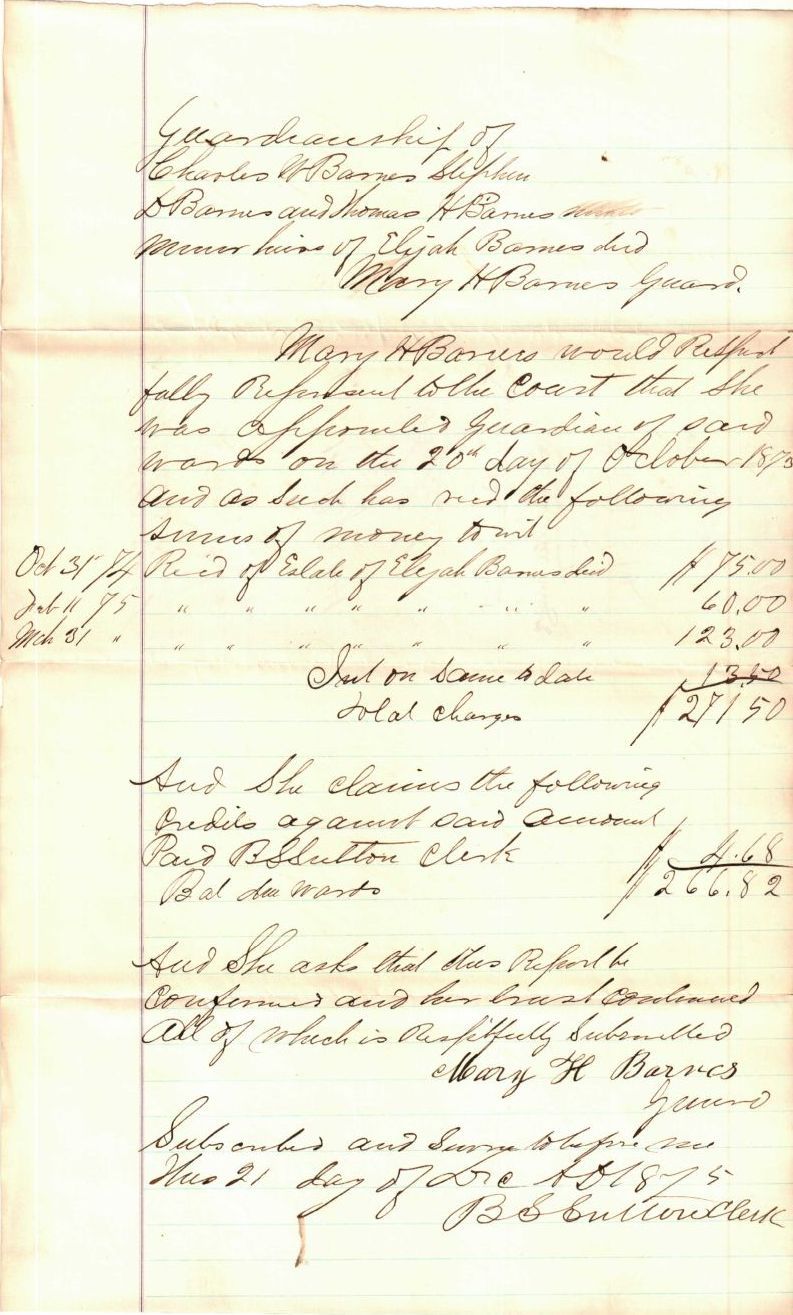 Guardianship of
Charles W Barnes Stephen
D Barnes and Thomas H Barnes
minor heirs of Elijah Barnes decd
Mary H Barnes Guard.
Mary H Barnes would Respect
fully Represent to the Court that She
was appointed Guardian of said
wards on the 20th day of October 1873
and as Such has recd the following
sums of money to wit
Oct 31st 74 Rec'd of Estate of Elijah Barnes decd $ 75.00
Feb 11 75 " " " " " " " 60.00
Mch 31 " " " " " " " " 123.00
Int on same to date 13.50
Total charges $ 271 50
And She claims the following
Credits against said Amount
Paid B S Sutton Clerk $ 4.68
Bal due wards $ 266.82
And She asks that this Report be
Confirmed and her trust continued
All of which is Respetfully Submitted
Mary H Barnes
Guard
Subscribed and Sworn to before me
this 21 day of Dec AD 1875
B S Sutton Clerk